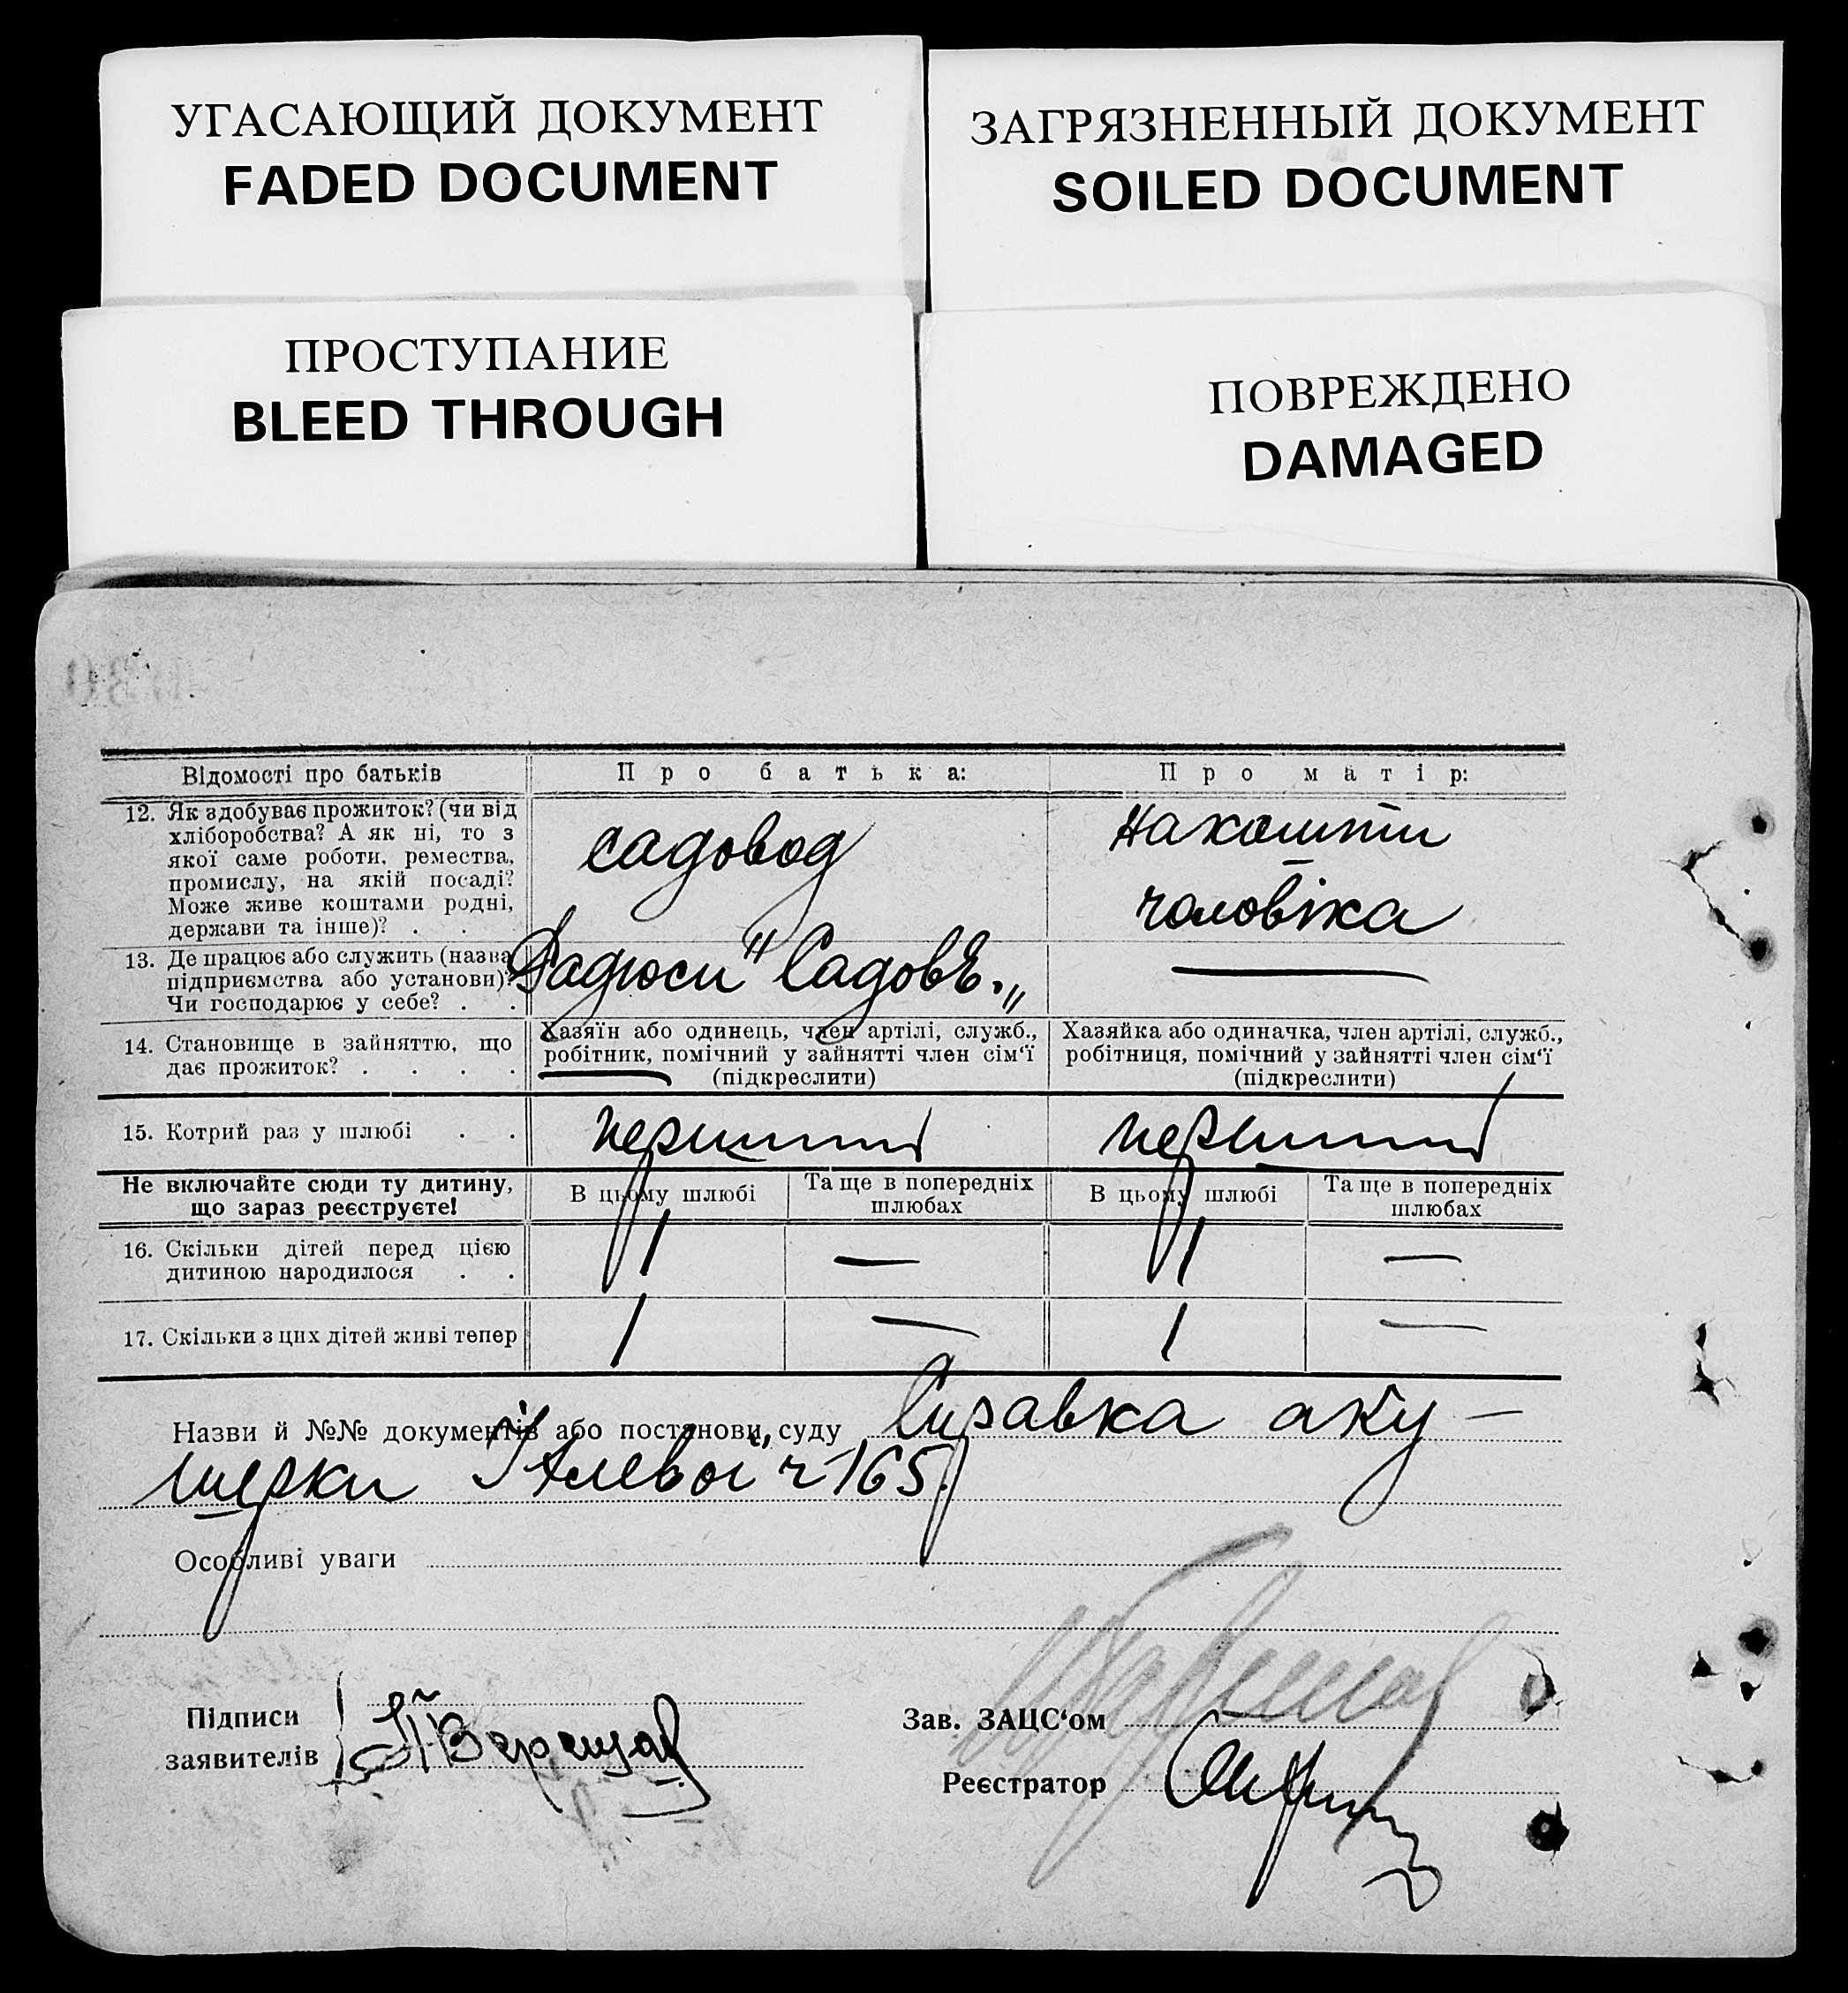 УГАСАЮЩИЙ ДОКУМЕНТ
FADED DOCUMENT
ЗАГРЯЗНЕННЫЙ ДОКУМЕНТ
SOILED DOCUMENT
ПРОСТУПАНИЕ
BLEED THROUGH
ПОВРЕЖДЕНО
DAMAGED
Відомості про батьків
Про батька:
Про матір:
12. Як здобуває прожиток? (чи від
хліборобства? А як ні, то з
якої саме роботи, ремества,
промислу, на якій посаді?
Може живе коштами родні,
держави та інше)? . .
садовод
На кошти
чоловіка
13. Де працює або служить (назва
підприємства або установи)?
Чи господарює у себе? . .
14. Становище в зайняттю, що
дає прожиток? . . . .
Хазяїн або одинець, член артілі, служб.,
робітник, помічний у зайнятті член сім'ї
(підкреслити)
Хазяйка або одиначка, член артілі, служб.,
робітниця, помічний у зайнятті член сім'ї
(підкреслити)
15. Котрий раз у шлюбі . .
перший
перший
Не включайте сюди ту дитину,
що зараз реєструєте!
В цьому шлюбі
Та ще в попередніх
шлюбах
В цьому шлюбі
Та ще в попередніх
шлюбах
16. Скільки дітей перед цією
дитиною народилося . .
1
—
1
—
17. Скільки з цих дітей живі тепер
1
—
1
—
Назви й №№ документів або постанови суду Справка аку-
шерки ч 165.
Особливі уваги
Підписи
заявителів
Зав. ЗАЦС'ом
Реєстратор